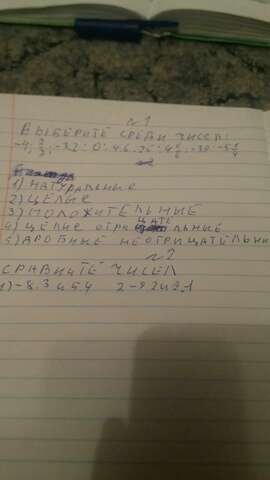 №1
ВЫБЕРИТЕ СРЕДИ ЧИСЕЛ:
-4; 2/3; -3,2; 0; 4,6; 25; 4 5/6; -38; -5 1/4
1) НАТУРАЛЬНЫЕ
2) ЦЕЛЫЕ
3) ПОЛОЖИТЕЛЬНЫЕ
4) ЦЕЛИЕ ОТРИЦАТЕЛЬНЫЕ
5) ДРОБНЫЕ НЕОТРИЦАТЕЛЬНЫ
№2
СРАВНИТЕ ЧИСЕЛ
1) -8,3 и 5,4